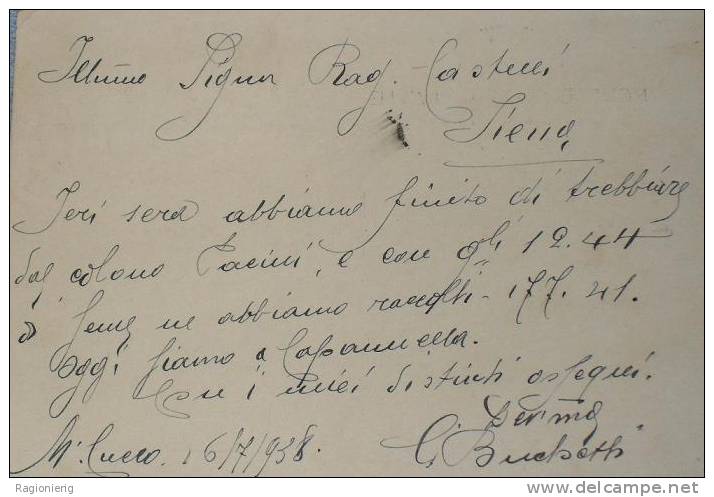 Illmo Signor Rag. Castelli
Siena,
Ieri sera abbiamo finito di trebbiare
dal colono Pacini, e con gli 12.44
di seme ne abbiamo raccolti - 177.41.
Oggi siamo a Capannella.
Con i miei distinti ossequi.
Dev.mo
M. Cucco. 16/7/938. G. Buchetti
Ragionieng
delcampe.net